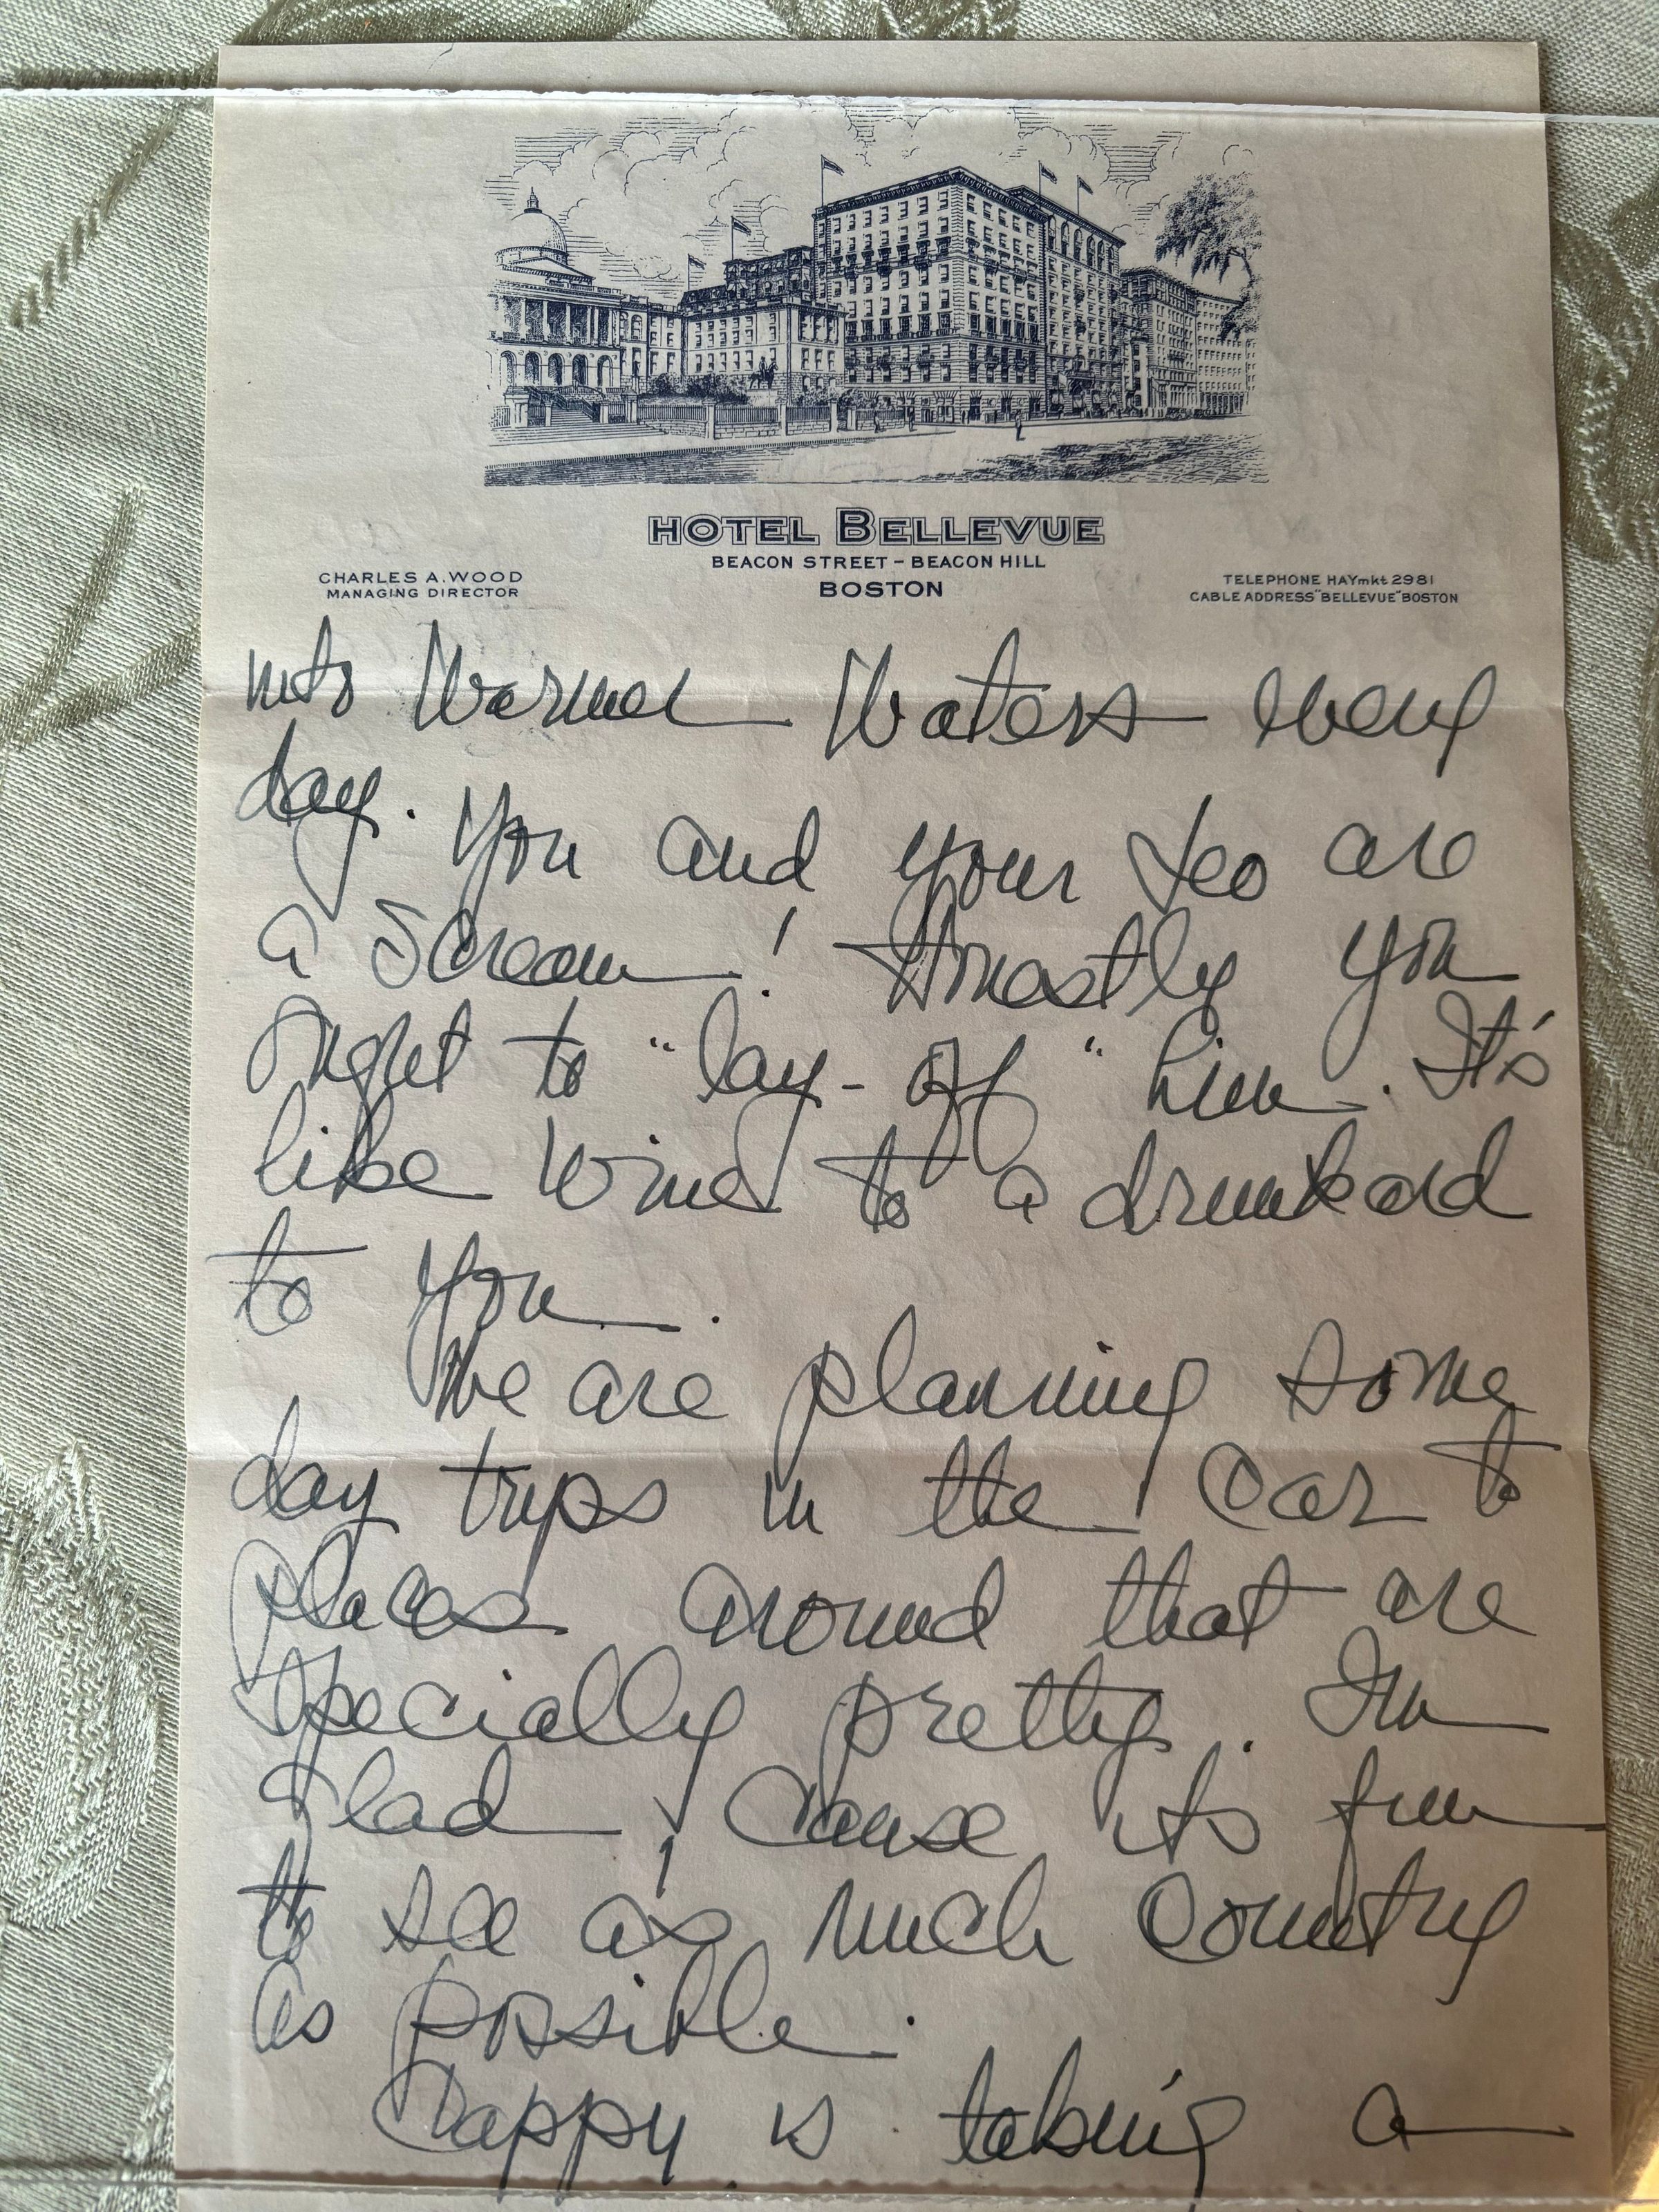 HOTEL BELLEVUE
BEACON STREET – BEACON HILL
BOSTON
CHARLES A. WOOD
MANAGING DIRECTOR
TELEPHONE HAYmkt 2981
CABLE ADDRESS "BELLEVUE" BOSTON
into Warmer Waters every
day. You and your Leo are
a Scream! Honestly you
ought to "lay-off" him. It's
like wine to a drunkard
to you.
We are planning some
day trips in the car to
places around that are
specially pretty. I'm
glad, cause its fun
to see as much country
as possible.
Chappy is taking a